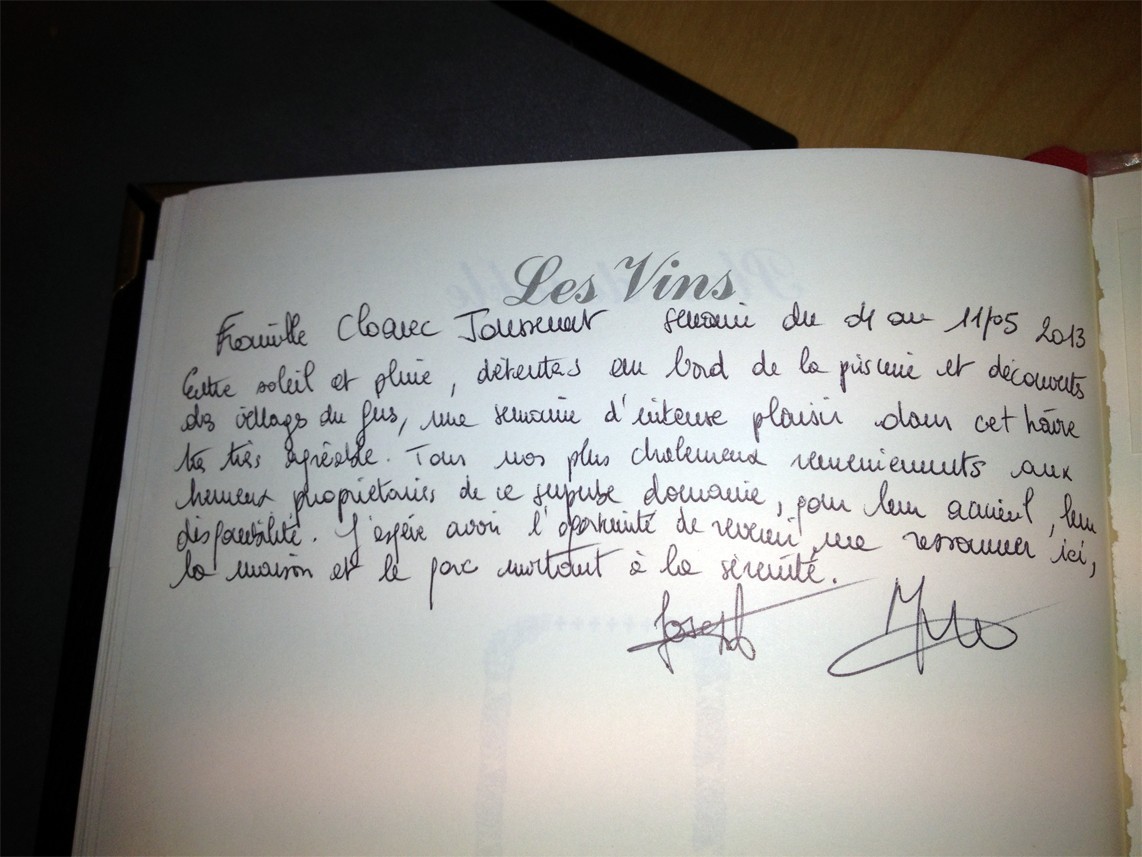 Les Vins
Famille Cloarec Toussenat semaine du 4 au 11/05 2013
Entre soleil et pluie, détentes au bord de la piscine et découverts
des villages du Gers, une semaine d'intense plaisir dans cet hâvre
très agréable. Tous nos plus chaleureux remerciements aux
heureux propriétaires de ce superbe domaine, pour leur accueil, leur
disponibilité. J'espère avoir l'opportunité de revenir me ressourcer ici,
la maison et le parc invitant à la sérénité.
Joseph